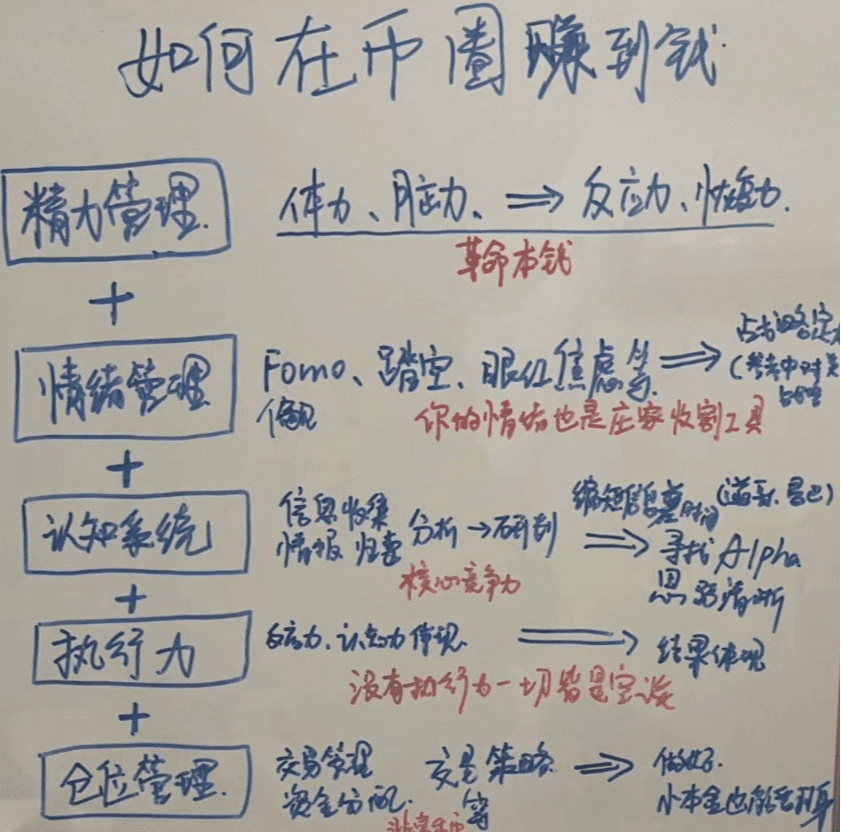 如何在币圈赚到钱
精力管理 体力、脑力、⇒ 反应力、恢复力.
革命本钱
+
情绪管理 Fomo、踏空、眼红焦虑等 ⇒
偏见
(参考中对美
你的情绪也是庄家收割工具
+
认知系统 信息收集 分析→研判 ⇒ 缩短信息差时间
情报归集 寻找Alpha
核心竞争力 思路清晰
+
执行力 反应力、认知力体现 ⇒ 结果体现
没有执行力一切皆是空谈
+
仓位管理 交易管理 交易策略 ⇒ 做好.
资金分配. 等 小本金也能翻身